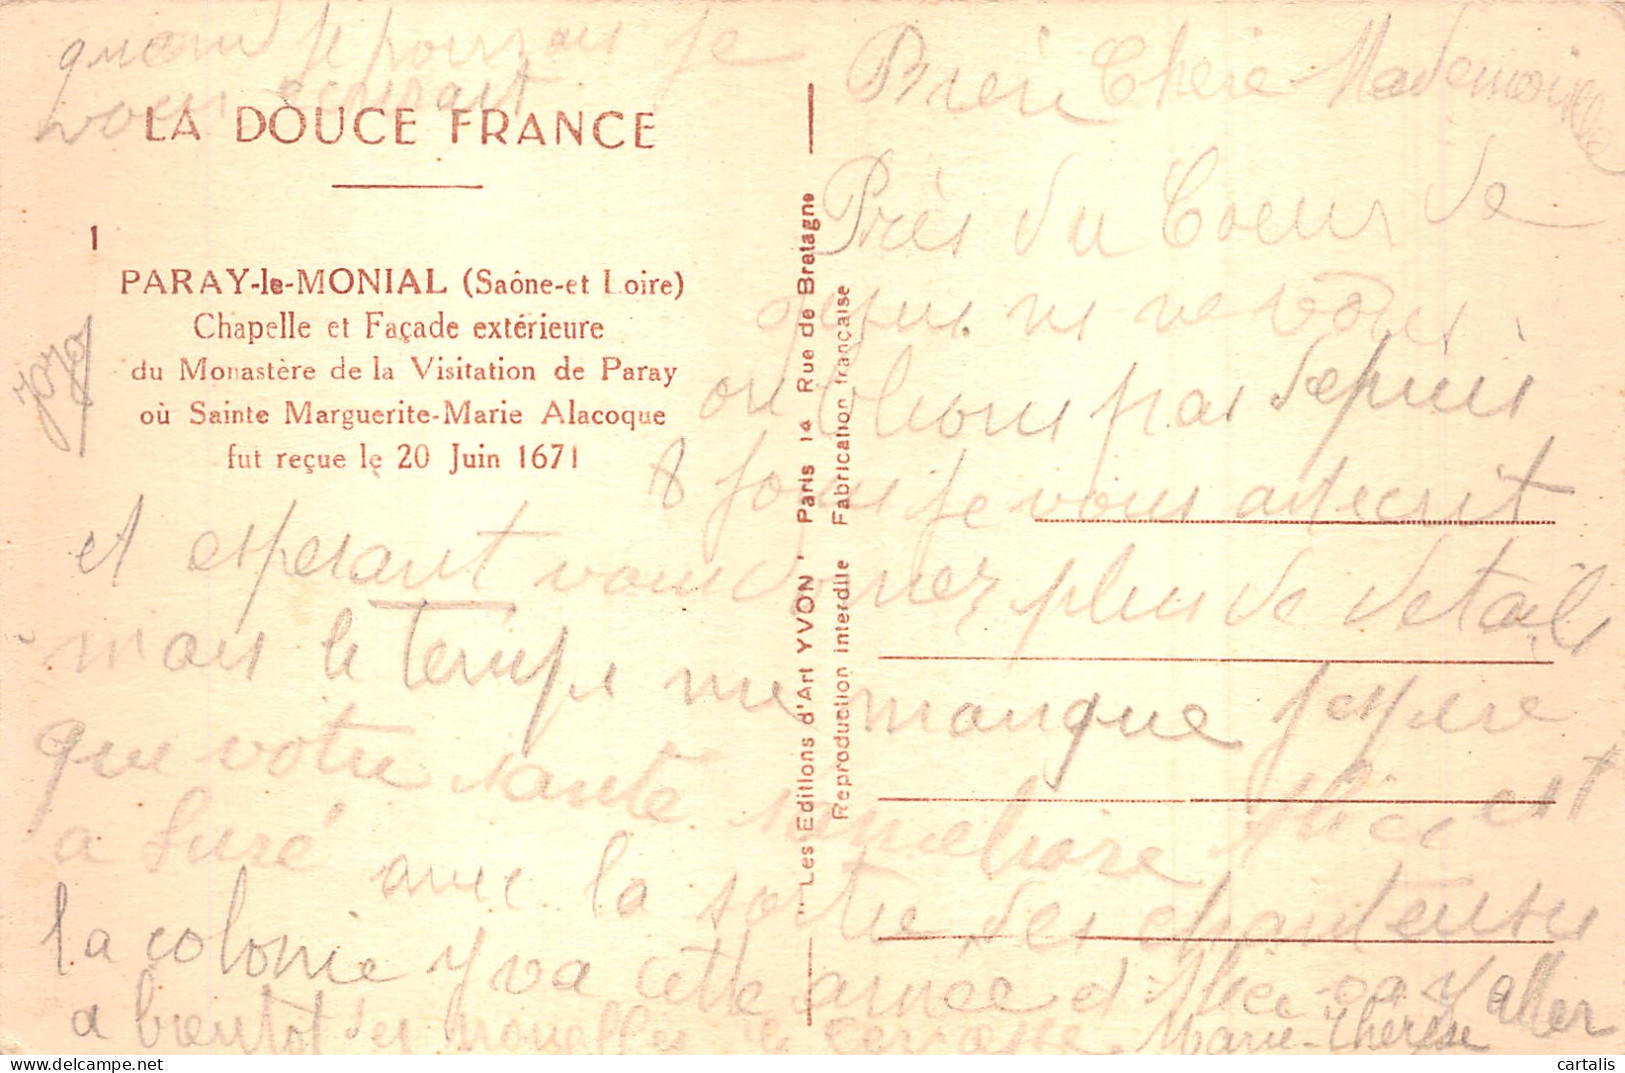 quand je pourrais je
vous écrirait
LA DOUCE FRANCE
1
PARAY-le-MONIAL (Saône-et Loire)
Chapelle et Façade extérieure
du Monastère de la Visitation de Paray
où Sainte Marguerite-Marie Alacoque
fut reçue le 20 Juin 1671
"Les Editions d'Art YVON" Paris 14 Rue de Bretagne
Reproduction interdite Fabrication française
Bien Chère Mademoiselle
Près du Coeur de
Jesus ne vous
oublions pas depuis
8 jours je vous ai ecrit
et esperant vous donnez plus de details
mais le temps me manque j'espere
que votre sante s'ameliore Alice est
a Curé avec la sortie des chanteuses
la colonie y va cette année et Alice va y aller
a bientot des nouvelles
Marie-Thérèse
cartalis